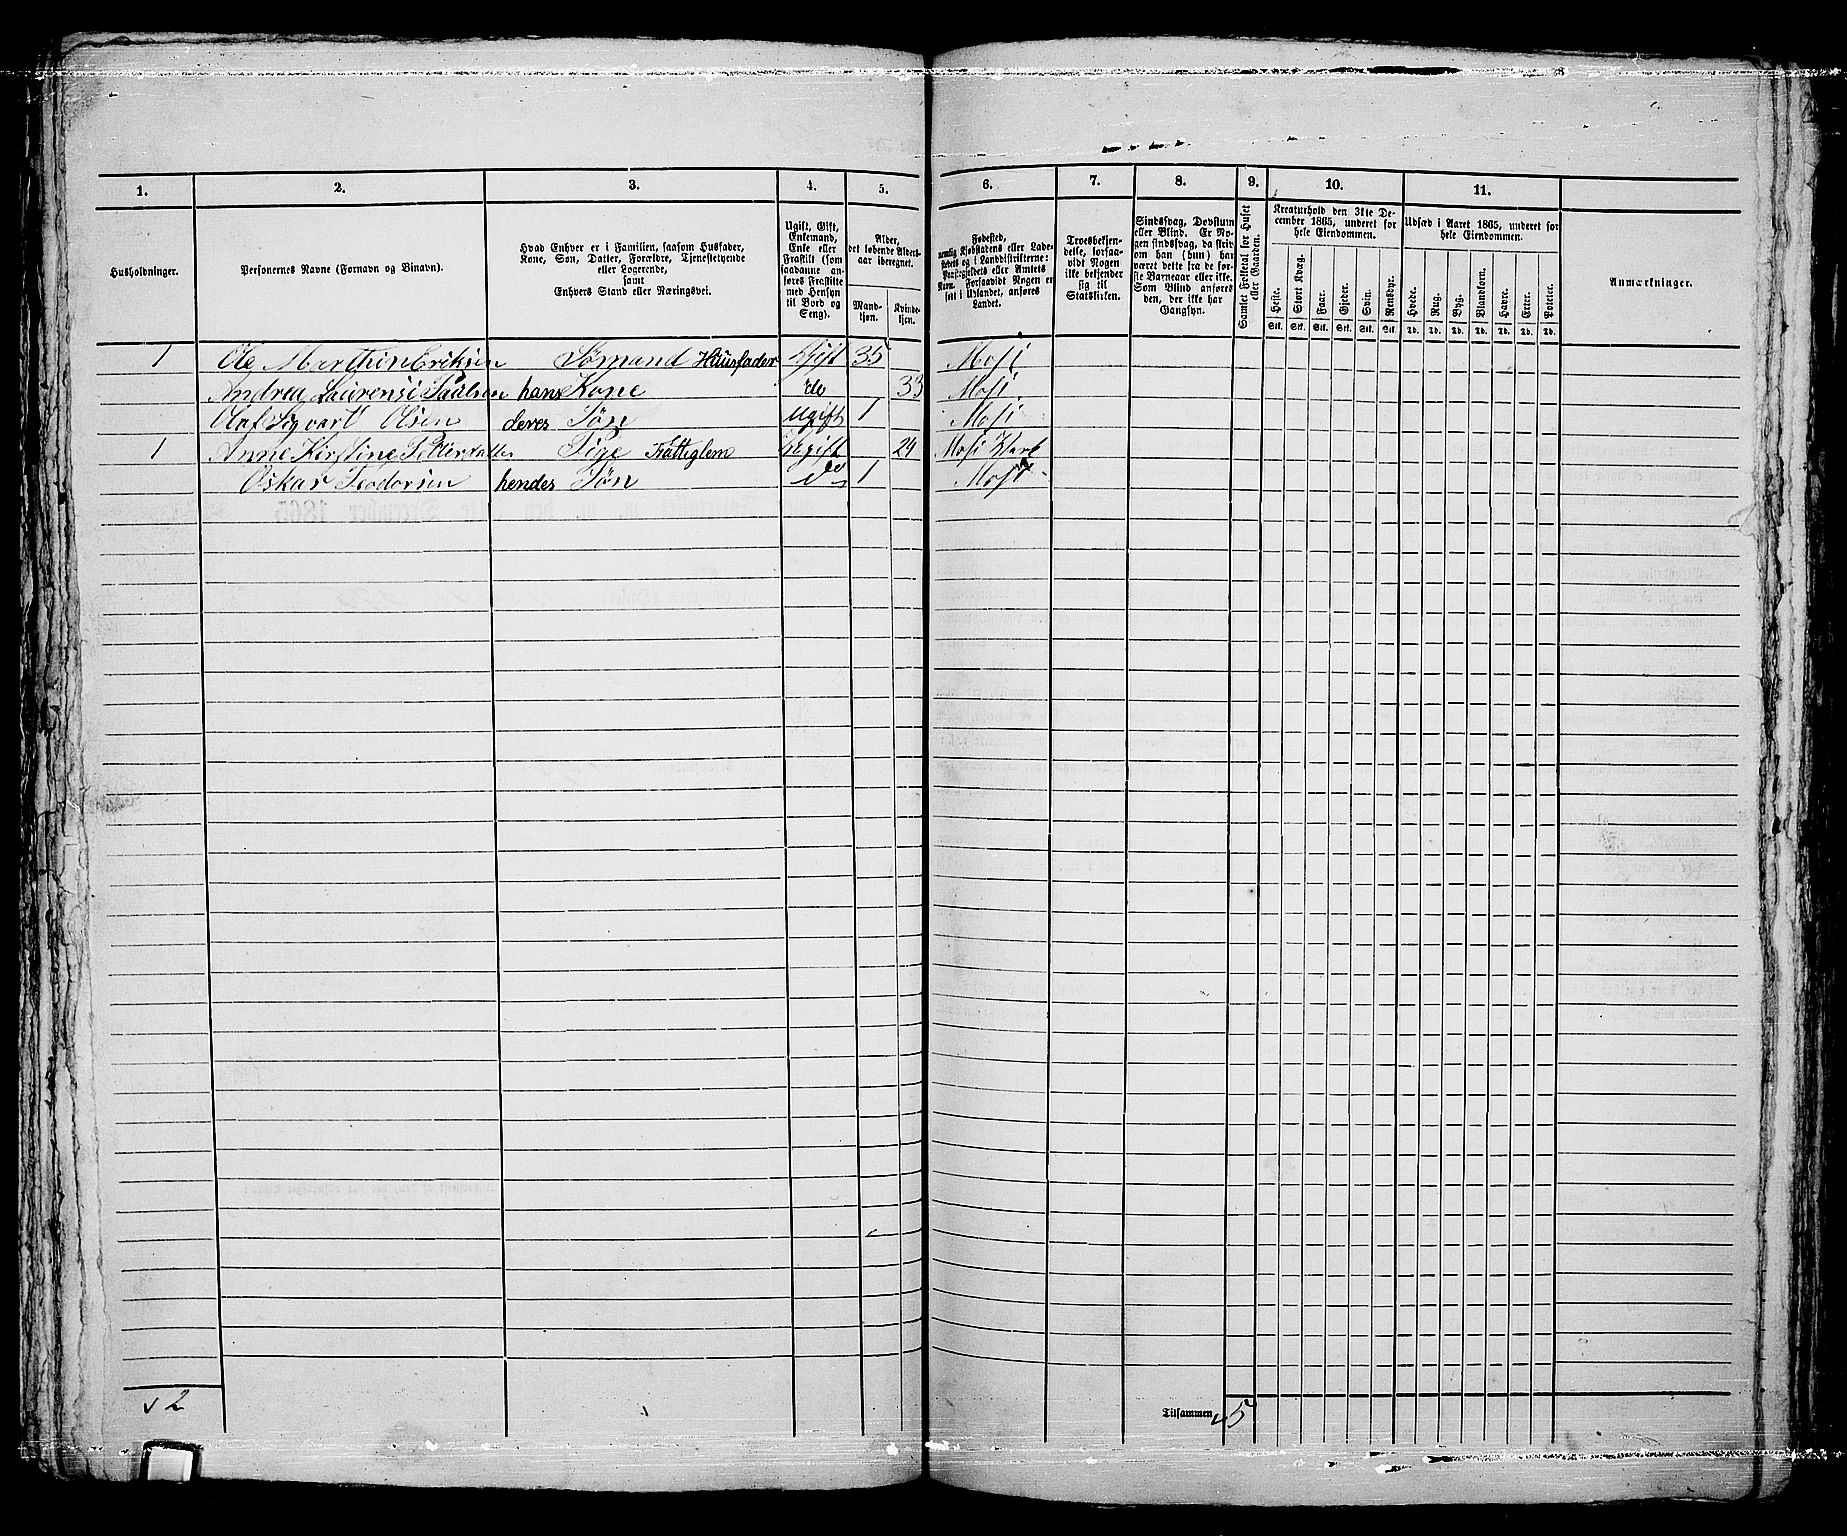 1. 2. 3. 4. 5. 6. 7. 8. 9. 10. 11.
Husholdninger.
Personernes Navne (Fornavn og Binavn).
Hvad Enhver er i Familien, saasom Husfader,
Kone, Søn, Datter, Forældre, Tjenestetyende
eller Logerende,
samt
Enhvers Stand eller Næringsvei.
Ugift, Gift,
Enkemand,
Enke eller
Fraskilt (som
saadanne an-
føres Fraskilte
med Hensyn
til Bord og
Seng).
Alder,
det løbende Alders-
aar iberegnet.
Mand-
kjøn.
Kvinde-
kjøn.
Fødested,
nemlig Kjøbstadens eller Lade-
stedets og i Landdistrikterne:
Præstegjeldets eller Amtets
Navn. Forsaavidt Nogen er
født i Udlandet, anføres
Landet.
Troesbekjen-
delse, forsaa-
vidt Nogen
ikke bekjender
sig til
Statskirken.
Sindssvag, Døvstum
eller Blind. Er No-
gen sindssvag, da skriv
om han (hun) har
været dette fra de før-
ste Barneaar eller ikke.
Som Blind anføres
den, der ikke har
Gangsyn.
Samlet Folketal for Huset
eller Gaarden.
Kreaturhold den 31te De-
cember 1865, underet for
hele Eiendommen.
Heste. Stort Kvæg. Faar. Gjeder. Svin. Rensdyr.
Stk. Stk. Stk. Stk. Stk. Stk.
Udsæd i Aaret 1865, underet for
hele Eiendommen.
Hvede. Rug. Byg. Blandkorn. Havre. Erter. Poteter.
Td. Td. Td. Td. Td. Td. Td.
Anmærkninger.
1 Ole Marthin Eriksen Sømand Huusfader Gift 35 Moss
Andrea Laurensi Paulsen hans Kone do 33 Moss
Olaf Sigvart Olsen deres Søn Ugift 1 Moss
1 Anne Kirstine Pedersdatter Pige Fattiglem Ugift 24 Moss
Oskar Teodorsen hendes Søn do 1 Moss
2
Tilsammen 5